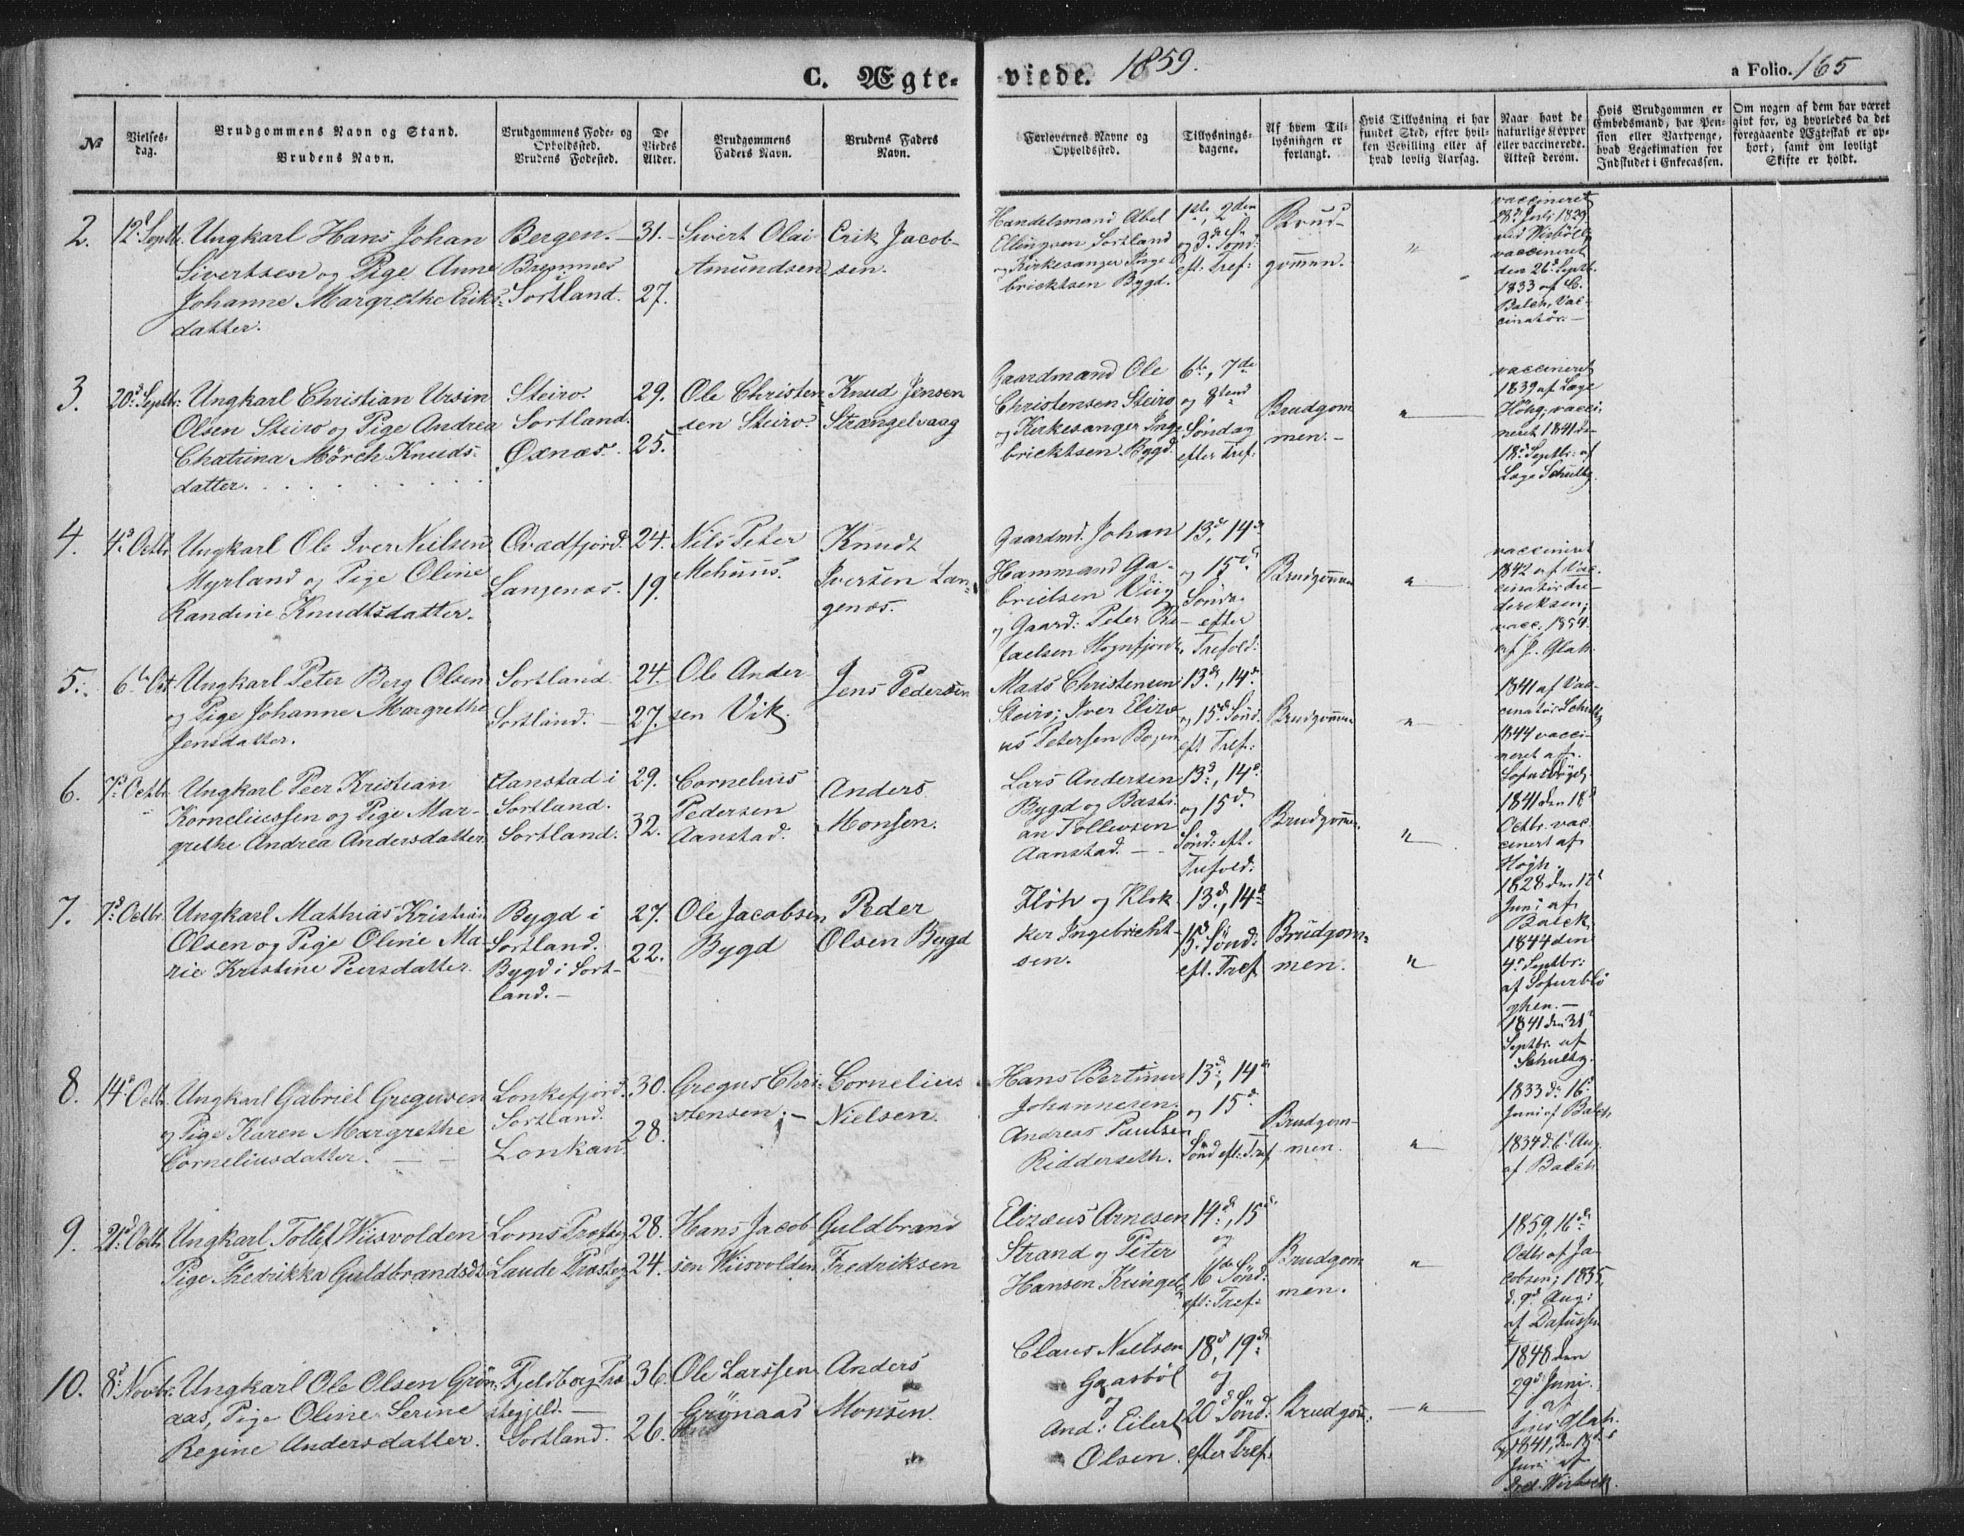 C. Ægte-
viede. 1859.
a Folio. 165
№
Vielses-
dag.
Brudgommens Navn og Stand.
Brudens Navn.
Brudgommens Føde- og
Opholdssted.
Brudens Fødested.
De
Viedes
Alder.
Brudgommens
Faders Navn.
Brudens Faders
Navn.
Forlovernes Navne og
Opholdssted.
Tillysnings-
dagene.
Af hvem Til-
lysningen er
forlangt.
Hvis Tillysning ei har
fundet Sted, efter hvil-
ken Bevilling eller af
hvad lovlig Aarsag.
Naar havt de
naturlige Kopper
eller vaccinerede.
Attest derom.
Hvis Brudgommen er
Embedsmand, har Pen-
sion eller Vartpenge,
hvad Legitimation for
Indskudet i Enkecassen.
Om nogen af dem har været
givt før, og hvorledes da det
foregaaende Ægteskab er op-
hørt, samt om lovligt
Skifte er holdt.
2.
12d Septbr.
Ungkarl Hans Johan
Sivertsen og Pige Anne
Johanne Margrethe Eriks-
datter.
Bergen.
Bremnæs
i
Sortland.
31.
27.
Sivert Olai
Amundsen
Erik Jacob-
sen.
Handelsmand Abel
Ellingsen Sortland
og Kirkesanger Inge-
bricktsen Bygd.
1ste, 2den
og 3d Sønd
eft: Tref:
Brud-
gommen.
"
vaccineret
28d Juli 1829
vaccineret
den 26d Septb.
1833 af C.
Balch, Vac-
cinatør.
3.
20d Septbr:
Ungkarl Christian Ursin
Olsen Steiro og Pige Andrea
Chatrina Mörch Knuds-
datter.
Steiro.
Sortland.
Øxnæs.
29.
25.
Ole Christen
sen Steiro.
Knud Jensen
Strængelvaag
Gaardmand Ole
Christensen Steiro
og Kirkesanger Inge
bricktsen Bygd.
6te, 7de
og 8tend
Søndag
efter Tref:
Brudgom
men.
"
vaccineret
1839 af Læge
Höhg; vacci
neret 1841 de
18d Septbr: af
Læge Schultz.
4.
4d Octbr.
Ungkarl Ole Iver Nielsen
Myrland og Pige Oline
Randine Knudtsdatter.
Qvædfjord.
Langenæs.
24.
19.
Nils Peter
Mehuus.
Knudt
Iversen Lan-
genæs.
Gaardmd. Johan
Hammand Ga-
brielsen Viig
og Gaard: Peter Ra-
faelsen Hognfjord.
13d, 14d
og 15d
Sønda.
efter
Trefold:
Brudgommen
"
vaccineret
1842 af Vac-
cinatør Fre-
dereksen;
vacc: 1854
af J. Glah.
5.
6te Oct
Ungkarl Peter Berg Olsen
og Pige Johanne Margrethe
Jensdatter.
Sortland
Sortland.
24.
27.
Ole Ander
sen Vik.
Jens Pedersen
Mads Christensen
Steiro; Iver Elizæ
us Petersen Bogen
13d, 14d
og 15d Sønd
eft Tref:
Brudgommen
"
1841 af Vac-
cinatør Schultz
1844 vacci
neret af
6.
7d Octbr.
Ungkarl Peer Kristian
Korneliussen og Pige Mar-
grethe Andrea Andersdatter
Aanstad i
Sortland.
Sortland.
29.
32.
Cornelius
Pedersen
Aanstad.
Anders
Monsen.
Lars Andersen
Bygd og Basti-
an Tollevsen
Aanstad.
13d, 14d
og 15d.
Sønd: eft.
Trefold:
Brudgommen
"
1841 den 18d
Octbr. vac
cinert af
Högh.
7.
7d Octbr.
Ungkarl Mathias Kristian
Olsen og Pige Oline Ma-
rie Kristine Peersdatter.
Bygd i
Sortland.
Bygd i Sort-
land.
27.
22.
Ole Jacobsen
Bygd
Peder
Olsen Bygd
Flöh og Klok
ker Ingebricht-
sen.
13d, 14d
15d Sønd:
eft. Tref
Brudgom-
men.
"
1828 den 12d
Juni af
Balck,
1844 den
4d Septbr:
1841 den 31d
Septbr. af
Schultz.
8.
14d Octbr.
Ungkarl Gabriel Gregusen
og Pige Karen Margrethe
Corneliusdatter.
Lonkefjord.
Sortland.
Lonkan.
30.
28.
Gregus Chri-
stensen;
Cornelius
Nielsen.
Hans Bertinus
Johannesen.
Andreas Paulsen
Ridderseth.
13d, 14d
og 15d
Sønd eft: Tref
Brudgom-
men.
"
1833 d. 16d
Juni af Balch
1834 d. 6d Aug.
af Balch
9.
21d Octbr.
Ungkarl Tollef Wiisvolden
Pige Fredrikka Guldbrandsdt
Loms Prostg
Laude Prostg
28.
24.
Hans Jacob-
sen Wiisvolden
Guldbrand
Fredriksen
Elizæus Arnesen
Strand og Peter
Hansen Kringel
14d, 15d
og
16de Sønd:
eft: Tref:
Brudgom
men.
"
1859, 16d
Octbr af Ja-
cobsen; 1835,
d. 9d Aug:
10.
8d Novbr.
Ungkarl Ole Olsen Grön-
aas, Pige Oline Serine
Regine Andersdatter.
Fjeldberg Præ
stegjeld.
Sortland.
36.
26.
Ole Larssen
Grønaas
Anders
Monsen.
Claus Nielsen
Gaasböl
og
And: Eilert
Olsen.
18d, 19d
og
20d Sønd:
efter Tref.
Brudgom:
"
1848 den
29d Juni.
af
Jens Glah.
1841, den 18d
Juni af